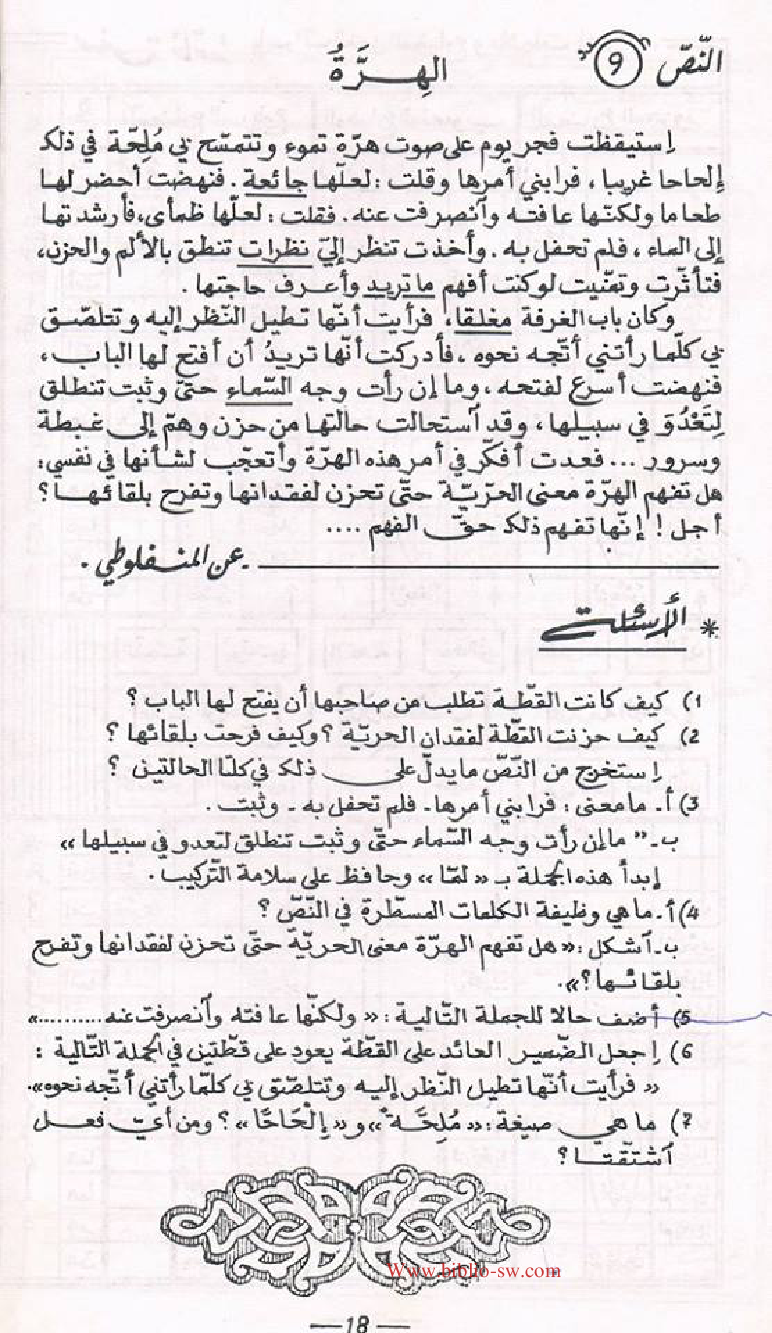 النّصّ 9
الهِرَّةُ
اِستيقظت فجر يوم على صوت هرّة تموء وتتمسّح بي مُلِحّة في ذلك
إلحاحا غريبا، فرابني أمرها وقلت: لعلّها جائعة. فنهضت أحضر لها
طعاما ولكنّها عافته وٱنصرفت عنه. فقلت: لعلّها ظمأى، فأرشدتها
إلى الماء، فلم تحفل به. وأخذت تنظر إليّ نظرات تنطق بالألم والحزن،
فتأثّرت وتمنّيت لو كنت أفهم ما تريد وأعرف حاجتها.
وكان باب الغرفة مغلقا، فرأيت أنّها تطيل النّظر إليه وتتلصّق
بي كلّما رأتني أتّجه نحوه، فأدركت أنّها تريدُ أن أفتح لها الباب،
فنهضت أسرع لفتحه، وما إن رأت وجه السّماء حتّى وثبت تنطلق
لِتَعْدُوَ في سبيلها، وقد ٱستحالت حالتها من حزن وهمّ إلى غبطة
وسرور ... فعدت أفكّر في أمر هذه الهرّة وأتعجّب لشأنها في نفسي:
هل تفهم الهرّة معنى الحرّيّة حتّى تحزن لفقدانها وتفرح بلقائها؟
أجل! إنّها تفهم ذلك حقّ الفهم ....
ـ عن المنفلوطي.
* الأسئلة
1) كيف كانت القطّة تطلب من صاحبها أن يفتح لها الباب؟
2) كيف حزنت القطّة لفقدان الحريّة؟ وكيف فرحت بلقائها؟
اِستخرج من النّصّ ما يدلّ على ذلك في كلتا الحالتين؟
3) أ ـ ما معنى: فرابني أمرها ـ فلم تحفل به ـ وثبت.
ب ـ " ما إن رأت وجه السّماء حتّى وثبت تنطلق لتعدو في سبيلها »
إبدأ هذه الجملة بـ « لمّا » وحافظ على سلامة التّركيب.
4) أ ـ ما هي وظيفة الكلمات المسطّرة في النّصّ؟
ب ـ ٱشكل: « هل تفهم الهرّة معنى الحريّة حتّى تحزن لفقدانها وتفرح
بلقائها؟».
5) أضف حالا للجملة التّالية: « ولكنّها عافته وٱنصرفت عنه..........»
6) اِجعل الضّمير العائد على القطّة يعود على قطّتين في الجملة التّالية:
« فرأيت أنّها تطيل النّظر إليه وتتلصّق بي كلّما رأتني أتّجه نحوه».
7) ما هي صيغة: « مُلِحَّة » و « إِلْحَاحًا »؟ ومن أيّ فعل
ٱشتقّتا؟
Www.biblio-sw.com
— 18 —